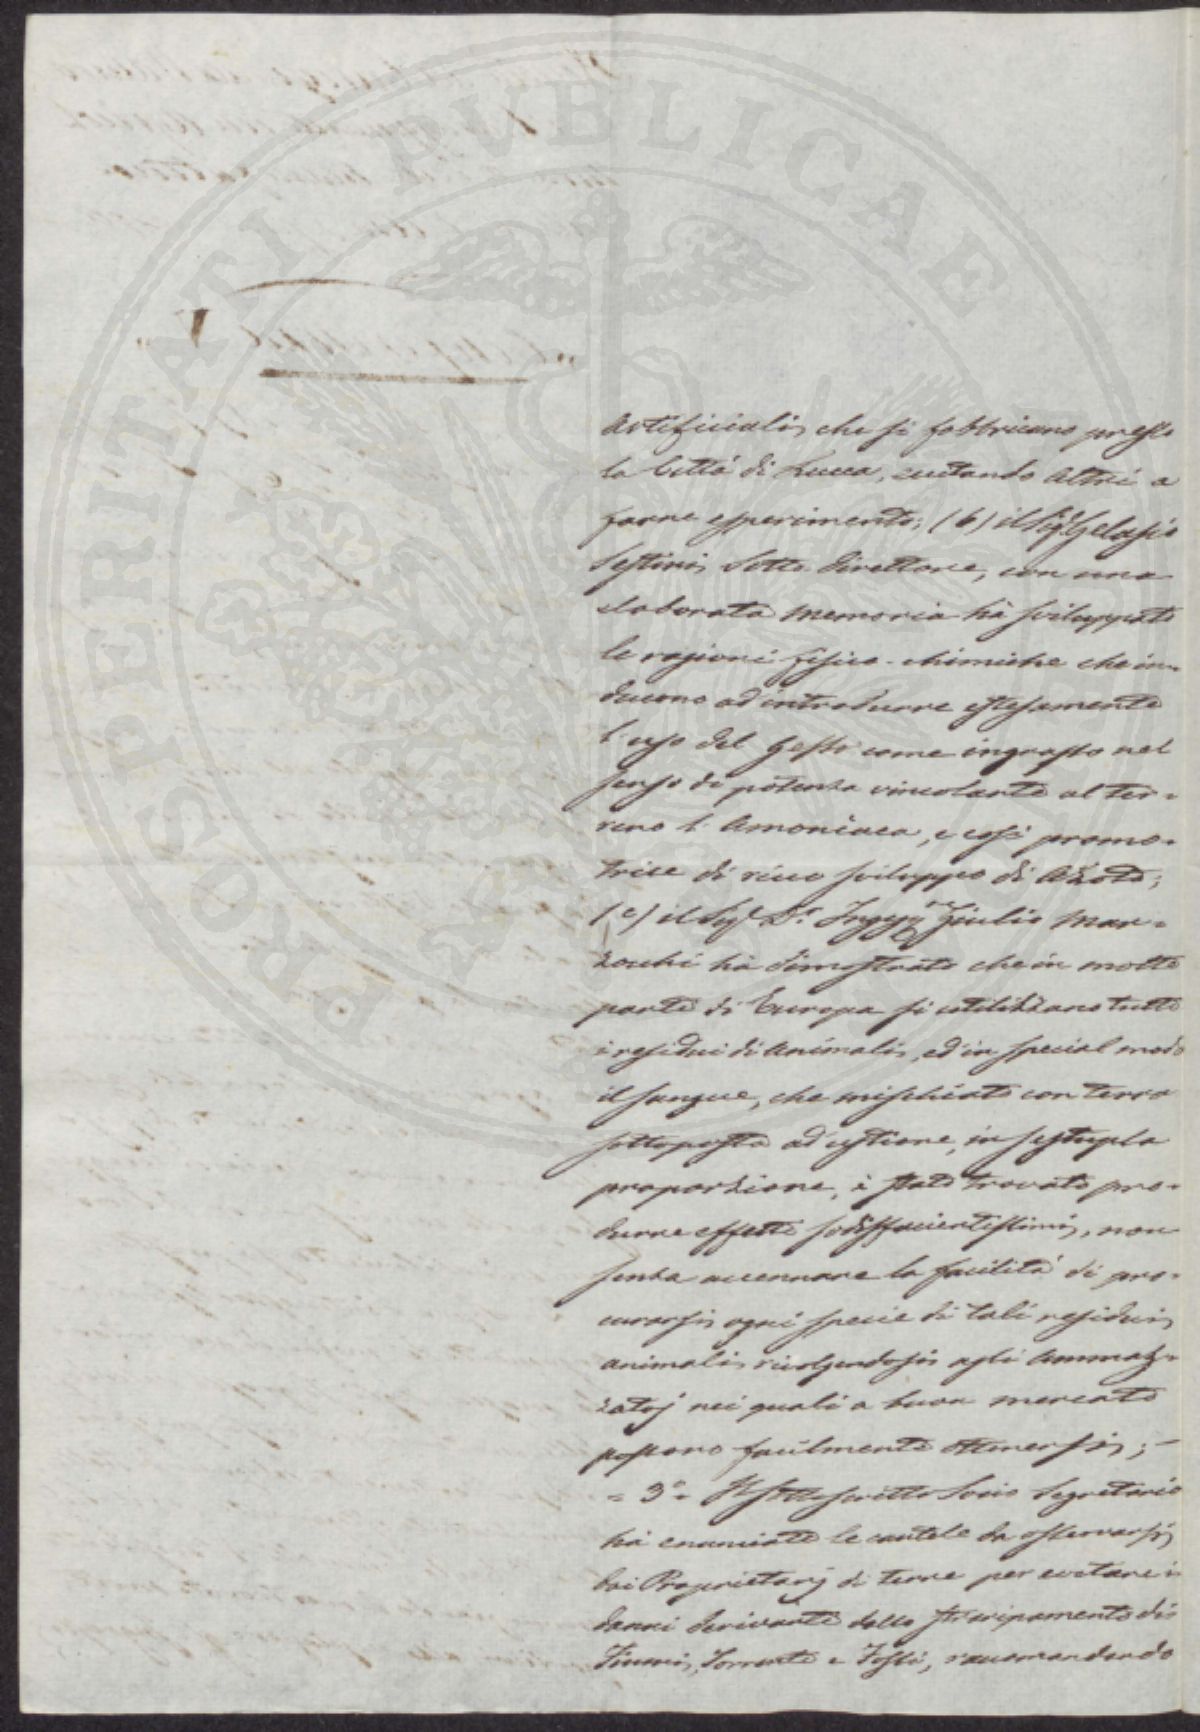 PROSPERITATI PUBLICAE A
Artificiali, che si fabbricano presso
la Città di Lucca, excitando altri a
farne esperimento; (b) il Sig.r Gelasio
Sestini Sotto Direttore, con una
elaborata memoria hà sviluppato
le ragioni fisico-chimiche che in=
ducono ad introdurre estesamente
l'uso del Gesso come ingrasso nel
senso di potenza vincolante al ter=
reno l'Amoniaca, e così promo=
trice di ricco sviluppo di Azoto;
(c) il Sig.r D.r Ingeg.re Giulio Mar=
zocchi hà dimostrato che in molte
parti di Europa si utilizzano tutti
i residui di Animali, ed in special modo
il sangue, che mischiato con terra
sottoposta ad ustione, in sestupla
proporzione, è stato trovato pro=
durre effetti sodisfacientissimi, non
senza accennare la facilità di pro=
curarsi ogni specie di tali residui
animali rivolgendosi agli Ammaz=
zatoj nei quali a buon mercato
possono facilmente ottenersi; -
= 3° = Il Sottoscritto Socio Segretario
hà enunciato le cautele da osservarsi
dai Proprietarj di terre per evitare i
danni derivanti dallo straripamento di
Fiumi, Torrenti e Fossi, raccomandando